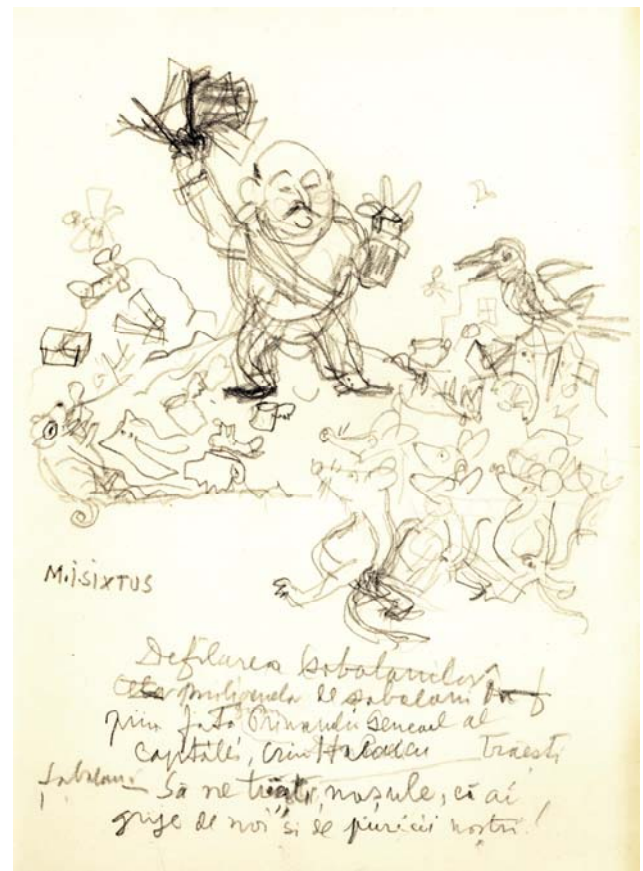 M.I.SIXTUS
Defilarea șobolanilor
de șobolani
prin fața Primarului General al
Capitalei, Crin Halaicu Trăești
Șobolanii
Să ne trăești, nașule, că ai
grije de noi și de puricii noștri!